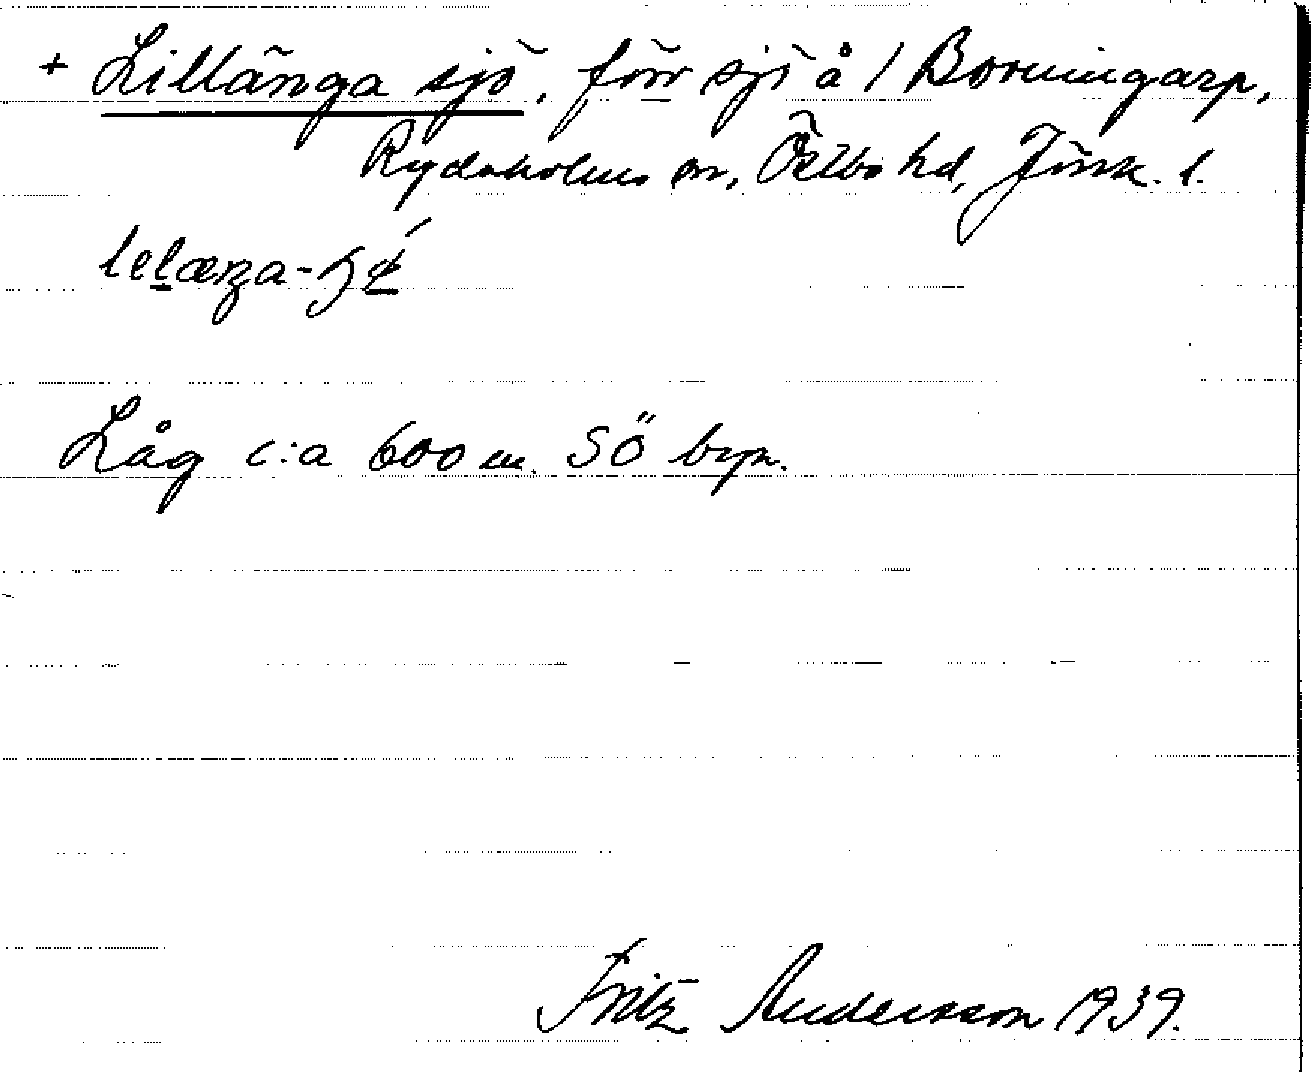 + Lillänga sjö, förr sjö å / Borningarp,
Rydaholms sn, Östbo hd, Jönk. l.
Låg c:a 600 m. SÖ byn.
Fritz Andersson 1939.